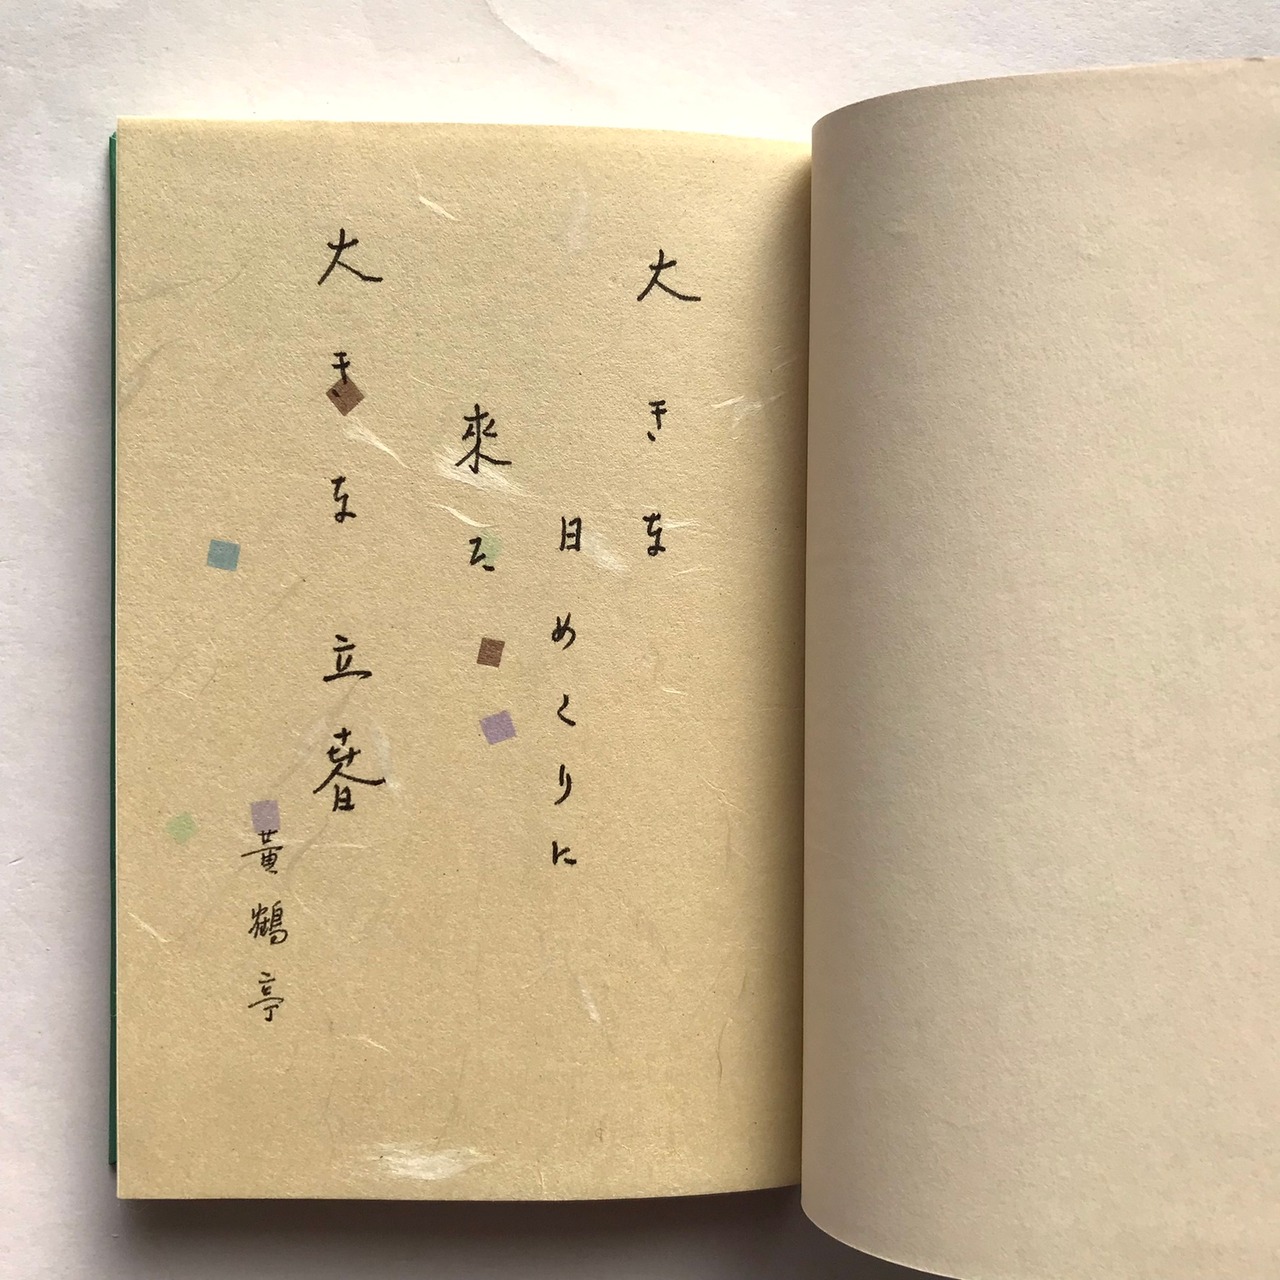 大きな
日めくりに
來た
大きな立春
黃鶴亭